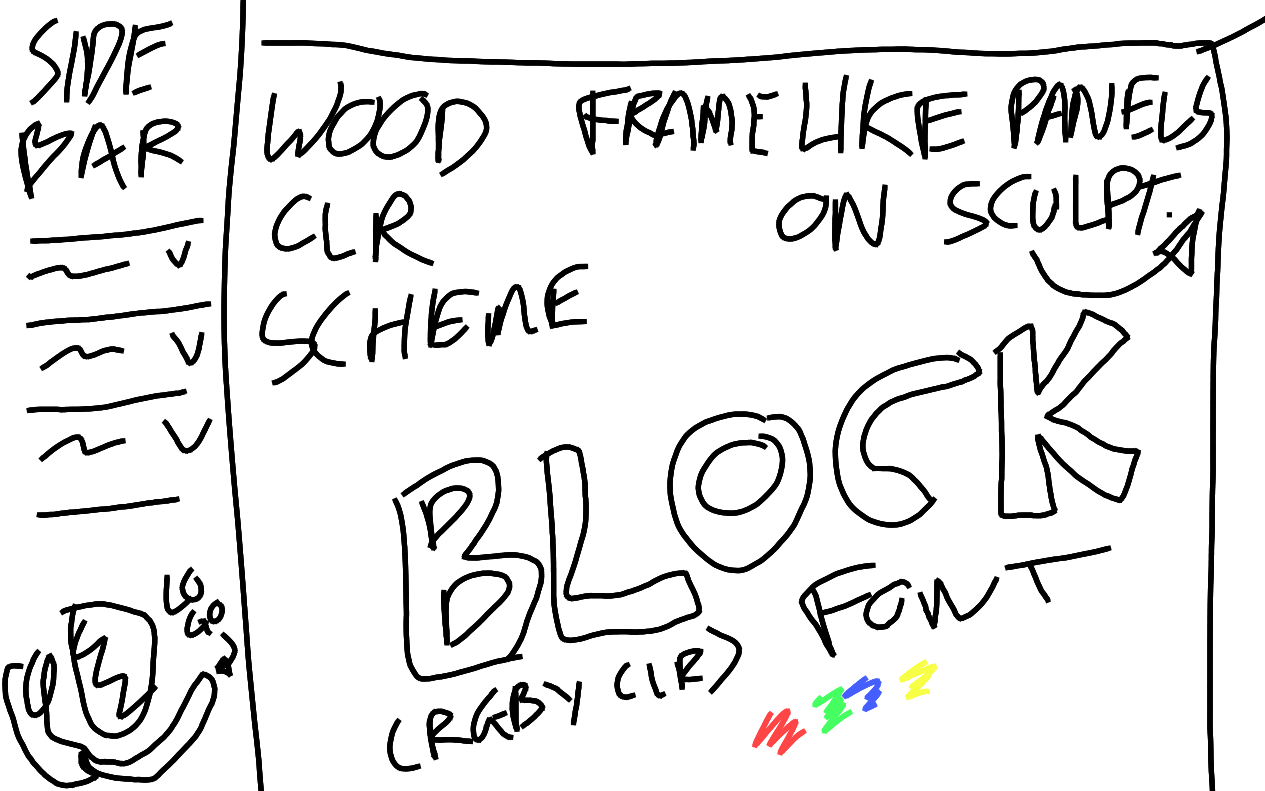 SIDE
BAR
LO
GO
WOOD
CLR
SCHEME
FRAME LIKE PANELS
ON SCULPT.
BLOCK
FONT
(RGBY CLR)